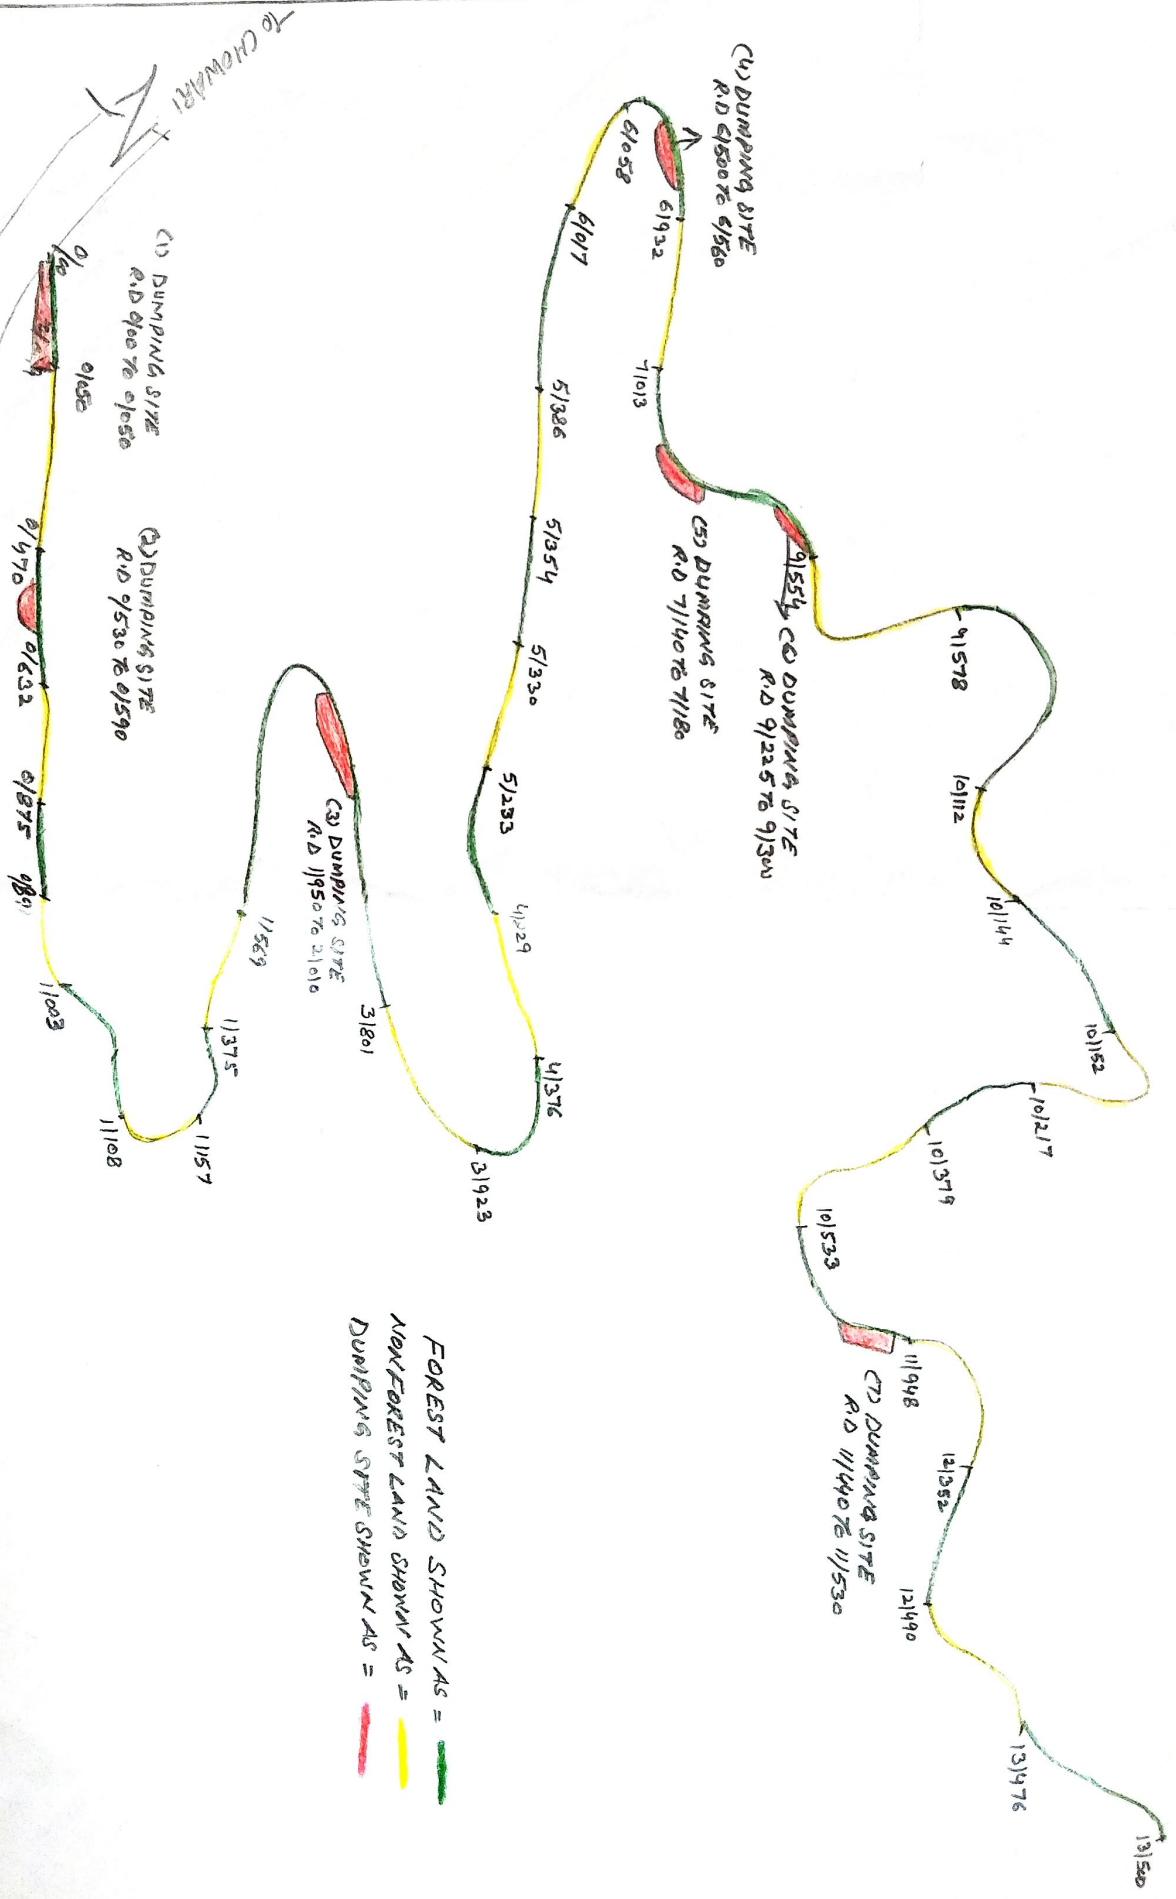 TO CHOWARI
0/00
0/050
(1) DUMPING SITE
R.D 0/00 TO 0/050
0/470
0/632
(2) DUMPING SITE
R.D 0/530 TO 0/590
0/875
1/003
1/108
1/157
1/375
1/569
(3) DUMPING SITE
R.D 1/950 TO 2/010
3/801
3/923
4/376
5/233
5/330
5/354
5/386
6/017
6/058
(4) DUMPING SITE
R.D 6/500 TO 6/560
6/932
7/013
(5) DUMPING SITE
R.D 7/140 TO 7/180
9/554
(6) DUMPING SITE
R.D 9/225 TO 9/300
9/578
10/112
10/144
10/152
10/217
10/379
10/533
(7) DUMPING SITE
R.D 11/440 TO 11/530
11/948
12/352
12/490
13/476
13/500
FOREST LAND SHOWN AS =
NONFOREST LAND SHOWN AS =
DUMPING SITE SHOWN AS =